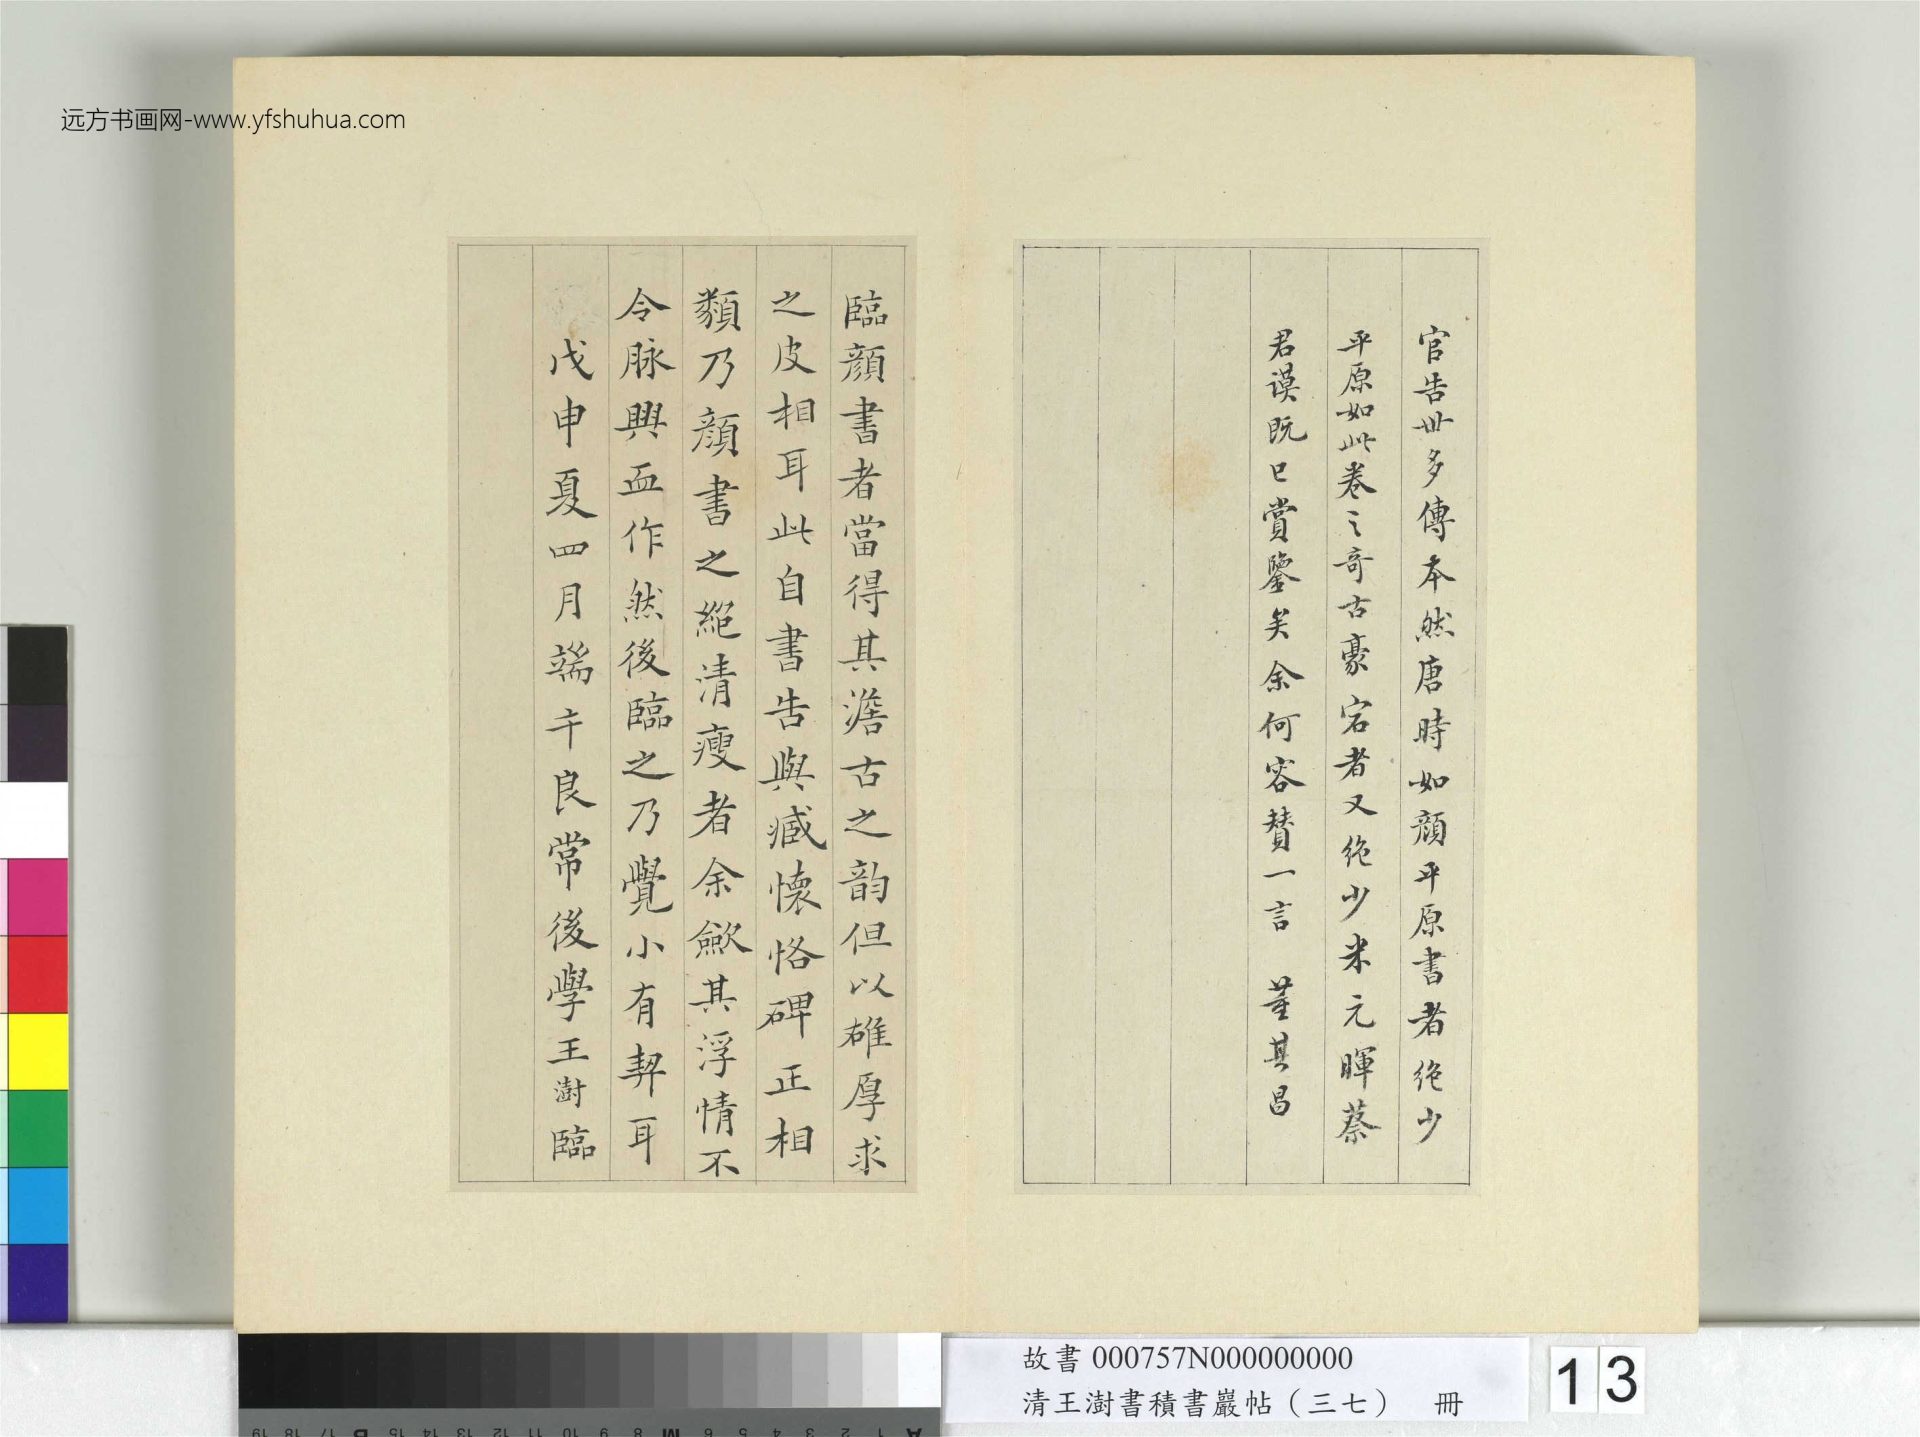 远方书画网-www.yfshuhua.com
官告世多傳本然唐時如顔平原書者絶少
平原如此卷之奇古豪宕者又絶少米元暉蔡
君謨既已賞鑒矣余何容贊一言 董其昌
臨顔書者當得其澹古之韵但以雄厚求
之皮相耳此自書告與臧懷恪碑正相
類乃顔書之絕清瘦者余斂其浮情不
令脉興血作然後臨之乃覺小有契耳
戊申夏四月端午良常後學王澍臨
故書 000757N000000000
清王澍書積書巖帖（三七） 冊
13